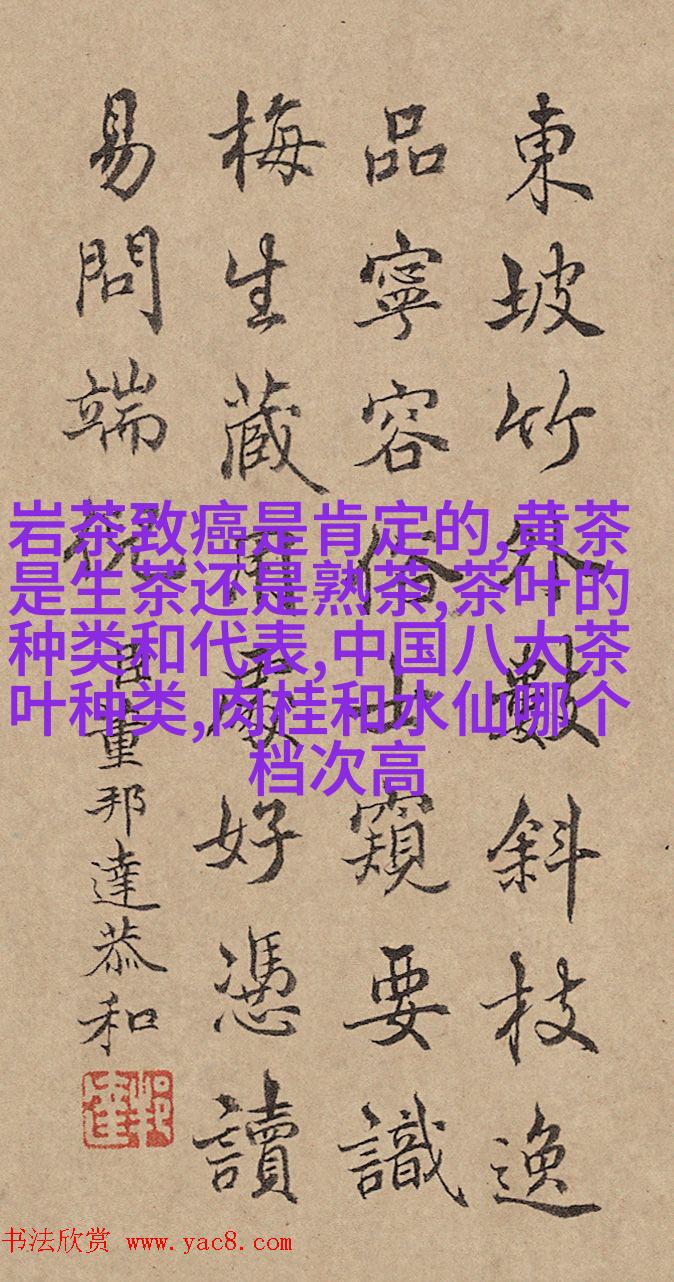 東坡竹外數斜枝逸
品寧容俗士窺要識
梅生蔵處好憑讀
易問端倪
臣董邦達恭和
岩茶致癌是肯定的,黄茶
是生茶还是熟茶,茶叶的
种类和代表,中国八大茶
叶种类,肉桂和水仙哪个
档次高
书法欣赏 www.yac8.com